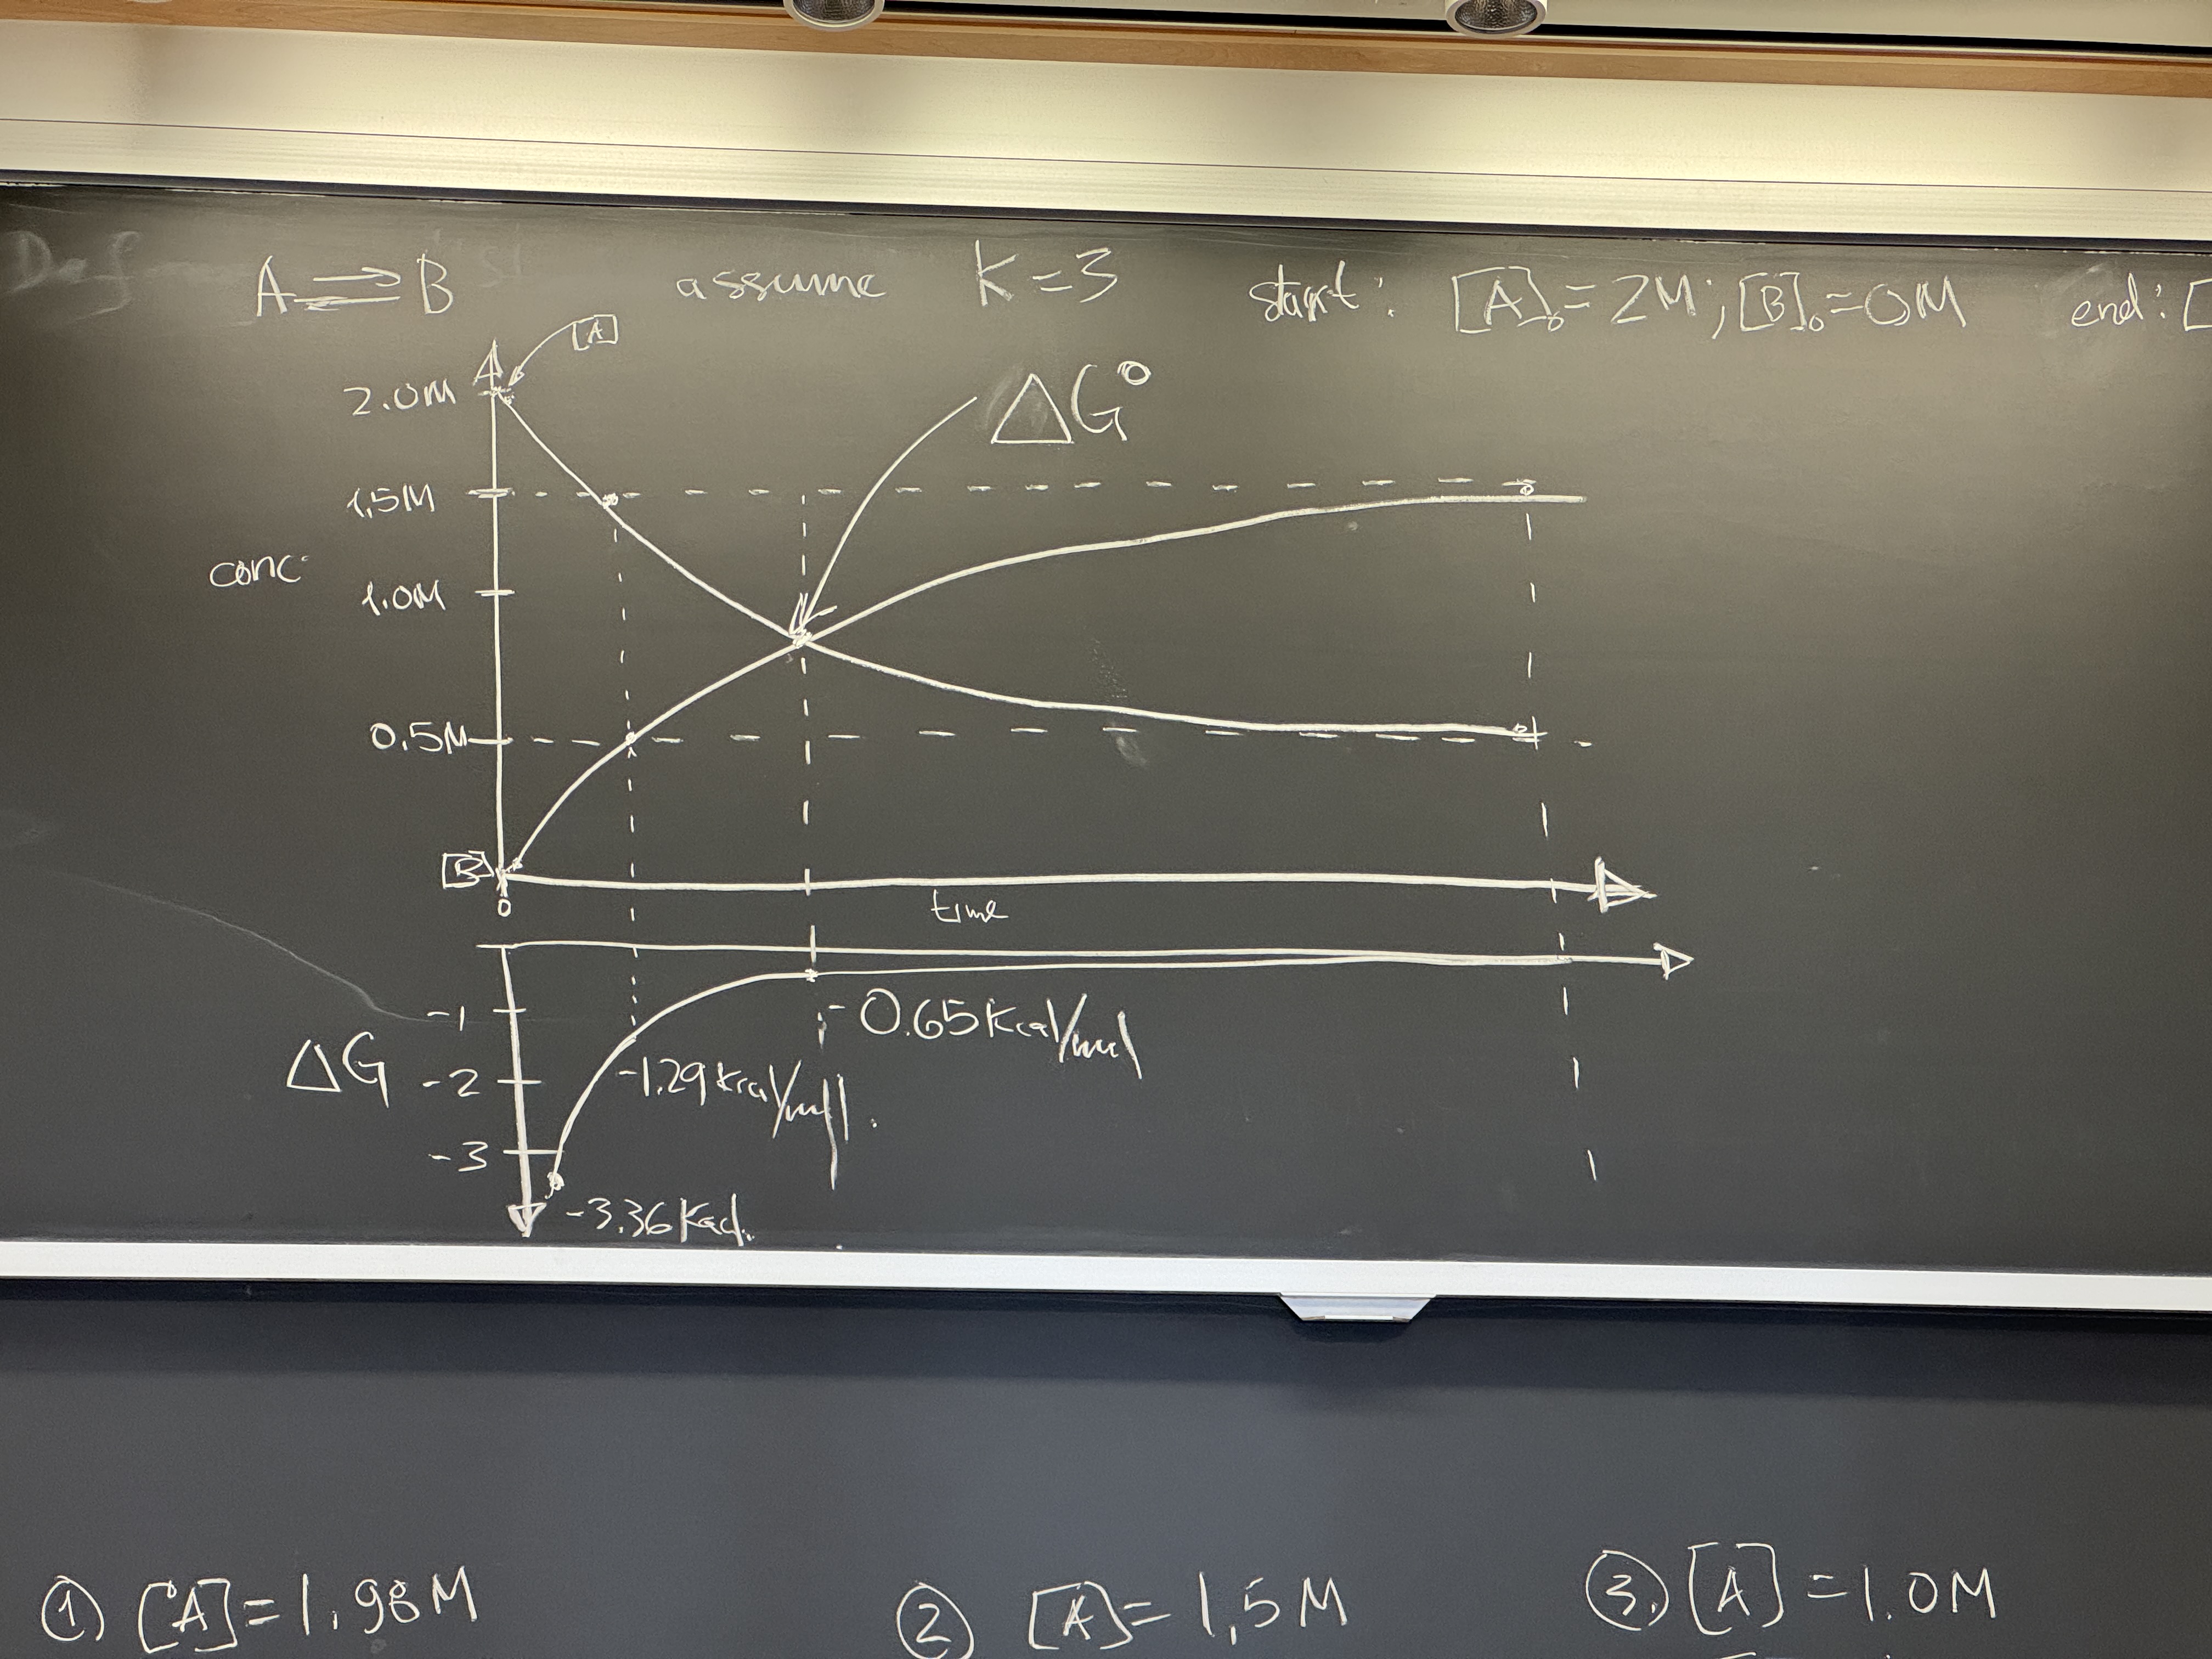 A ⇌ B assume K=3 start: [A]₀ = 2M; [B]₀ = 0M end: [
[A]
2.0M
ΔG°
1,5M
conc
1.0M
0.5M
[B]
0
time
-1
-0.65 Kcal/mol
ΔG -2
-1.29 Kcal/mol.
-3
-3.36 Kcal.
① [A] = 1.98M ② [A] = 1,5M ③. [A] = 1.0M